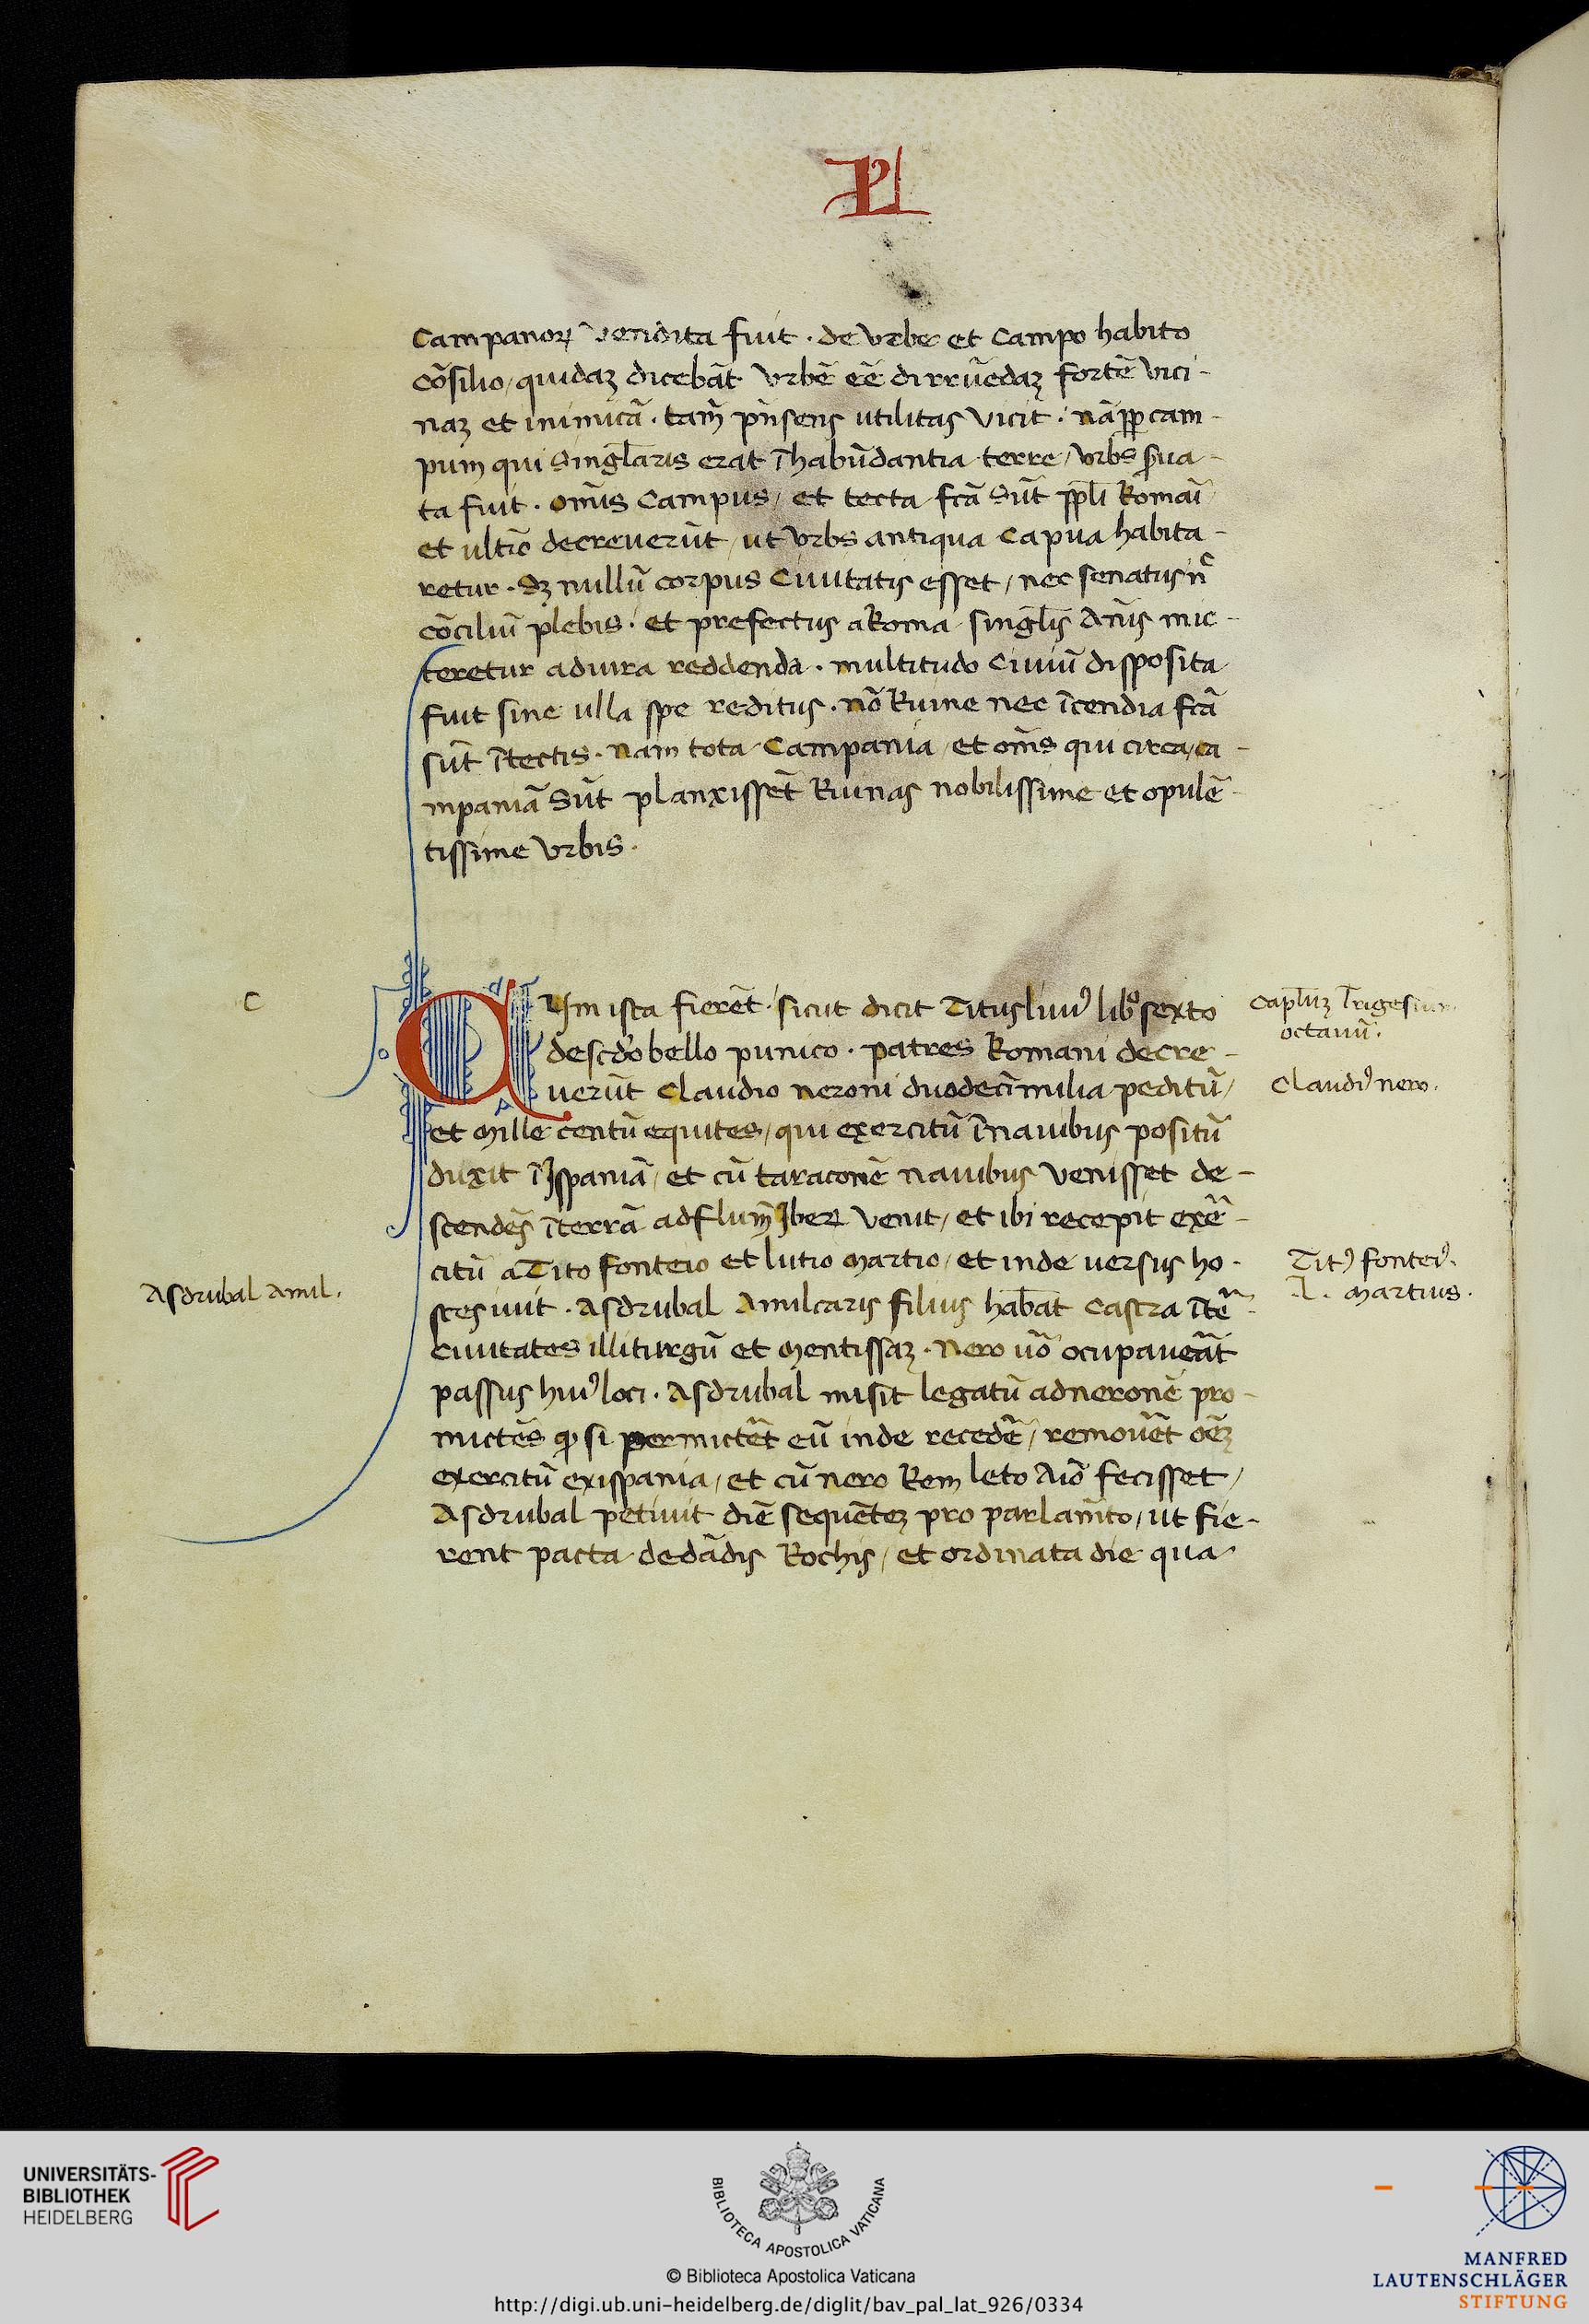 PL
Campanoꝝ vendita fuit · de urbe et Campo habito
cōsilio / quidaꝫ dicebāt urbē eē dirruēdaꝫ fortē vici-
naꝫ et inimicā · tam̄ pn̄sens utilitas vicit · nā ꝓp cam-
pum qui singl̄aris erat ī habūdantia terre / urbs s̄ua-
ta fuit · om̄s Campus / et tecta fcā sūt ppl̄i Romāi
et ultīo decreverūt / ut urbs antiqua Capua habita-
retur · sꝫ nullū corpus Civitatis esset / nec senatus nͨ
cōciliū plebis · et prefectus a Roma singl̄is An̄is mic-
teretur ad iura reddenda · multitudo Civiū disposita
fuit sine ulla spe reditus · nō Ruine nec īcendia fcā
sūt ī tectis · nam tota Campania / et om̄s qui circa / ca-
mpaniā sūt planxissēt Ruinas nobilissime et opulē-
tissime urbis ·
C
CUm ista fierēt · sicut dicit Titus liviꝰ libº sexto
de scd̄o bello punico · patres Romani decre-
verūt Claudio neroni duodeci milia peditū /
et Mille centū equites / qui exercitū ī navibus positū
duxit ī Jspaniā / et cū taraconē navibus venisset de-
scendēs ī terrā ad flum̄ Jbeꝝ venit / et ibi recepit exē-
citū a Tito fonteio et lutio Martio / et inde versus ho-
stes ivit · Asdrubal Amilcaris filius hab̄at Castra ītē
Civitates illiturgū et Mentissaꝫ · Nero vō ocupaveāt
passus huiꝰ loci · Asdrubal misit legatū ad neronē pro-
mictēs ꝙ si permictēt eū inde recedē / removēt oēꝫ
exercitū ex ispania / et cū nero Rem leto Aīo fecisset /
Asdrubal petivit diē sequēteꝫ pro parlam̄to / ut fie-
rent pacta de dādis Rochis / et ordinata die qua
Capl̄uꝫ Trigesium
octavū ·
Claudiꝰ nero ·
Titꝰ fonteiꝰ ·
·L· Martius ·
Asdrubal Amil ·
UNIVERSITÄTS-
BIBLIOTHEK
HEIDELBERG
BIBLIOTECA APOSTOLICA VATICANA
© Biblioteca Apostolica Vaticana
http://digi.ub.uni-heidelberg.de/diglit/bav_pal_lat_926/0334
MANFRED
LAUTENSCHLÄGER
STIFTUNG